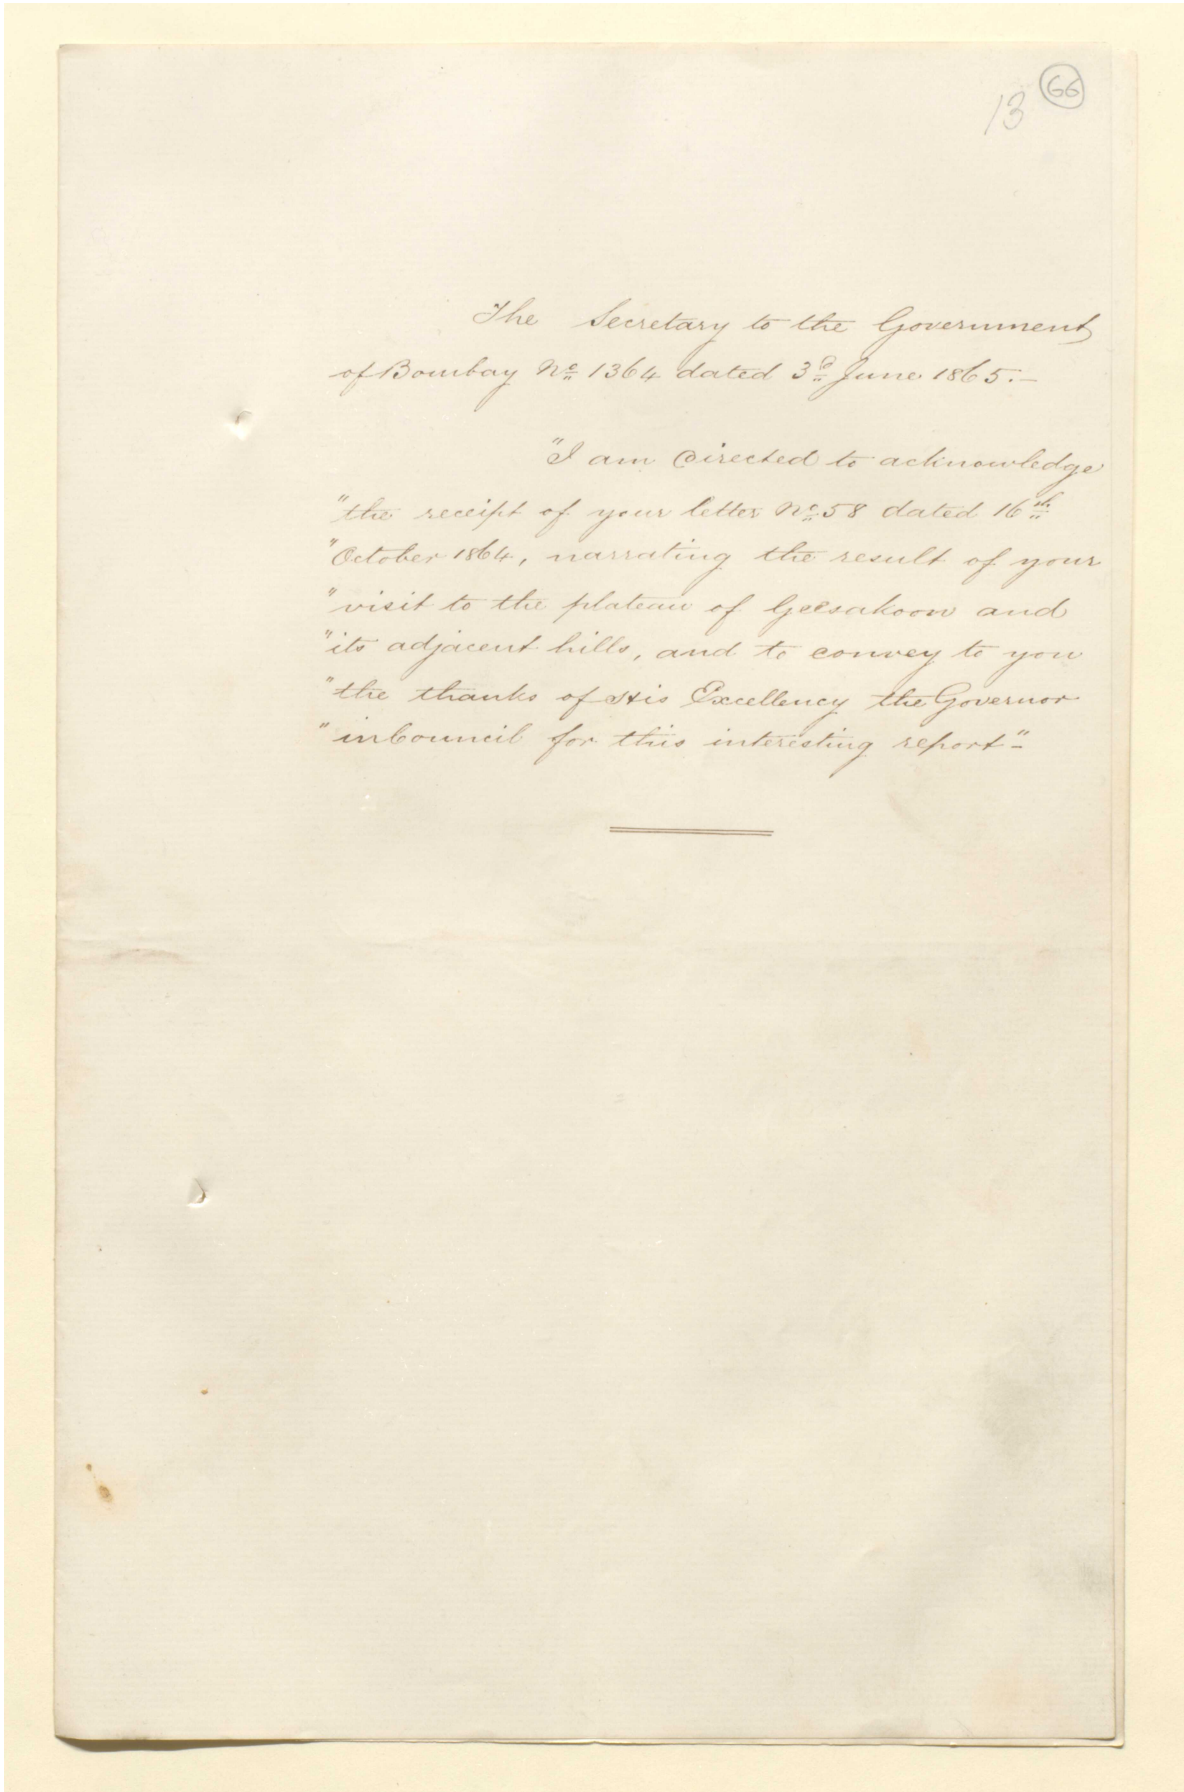 66
13
The Secretary to the Government
of Bombay No 1364 dated 3d June 1865.—
"I am directed to acknowledge
"the receipt of your letter No 58 dated 16th
"October 1864, narrating the result of your
"visit to the plateau of Geesakoon and
"its adjacent hills, and to convey to you
"the thanks of His Excellency the Governor
"in Council for this interesting report"